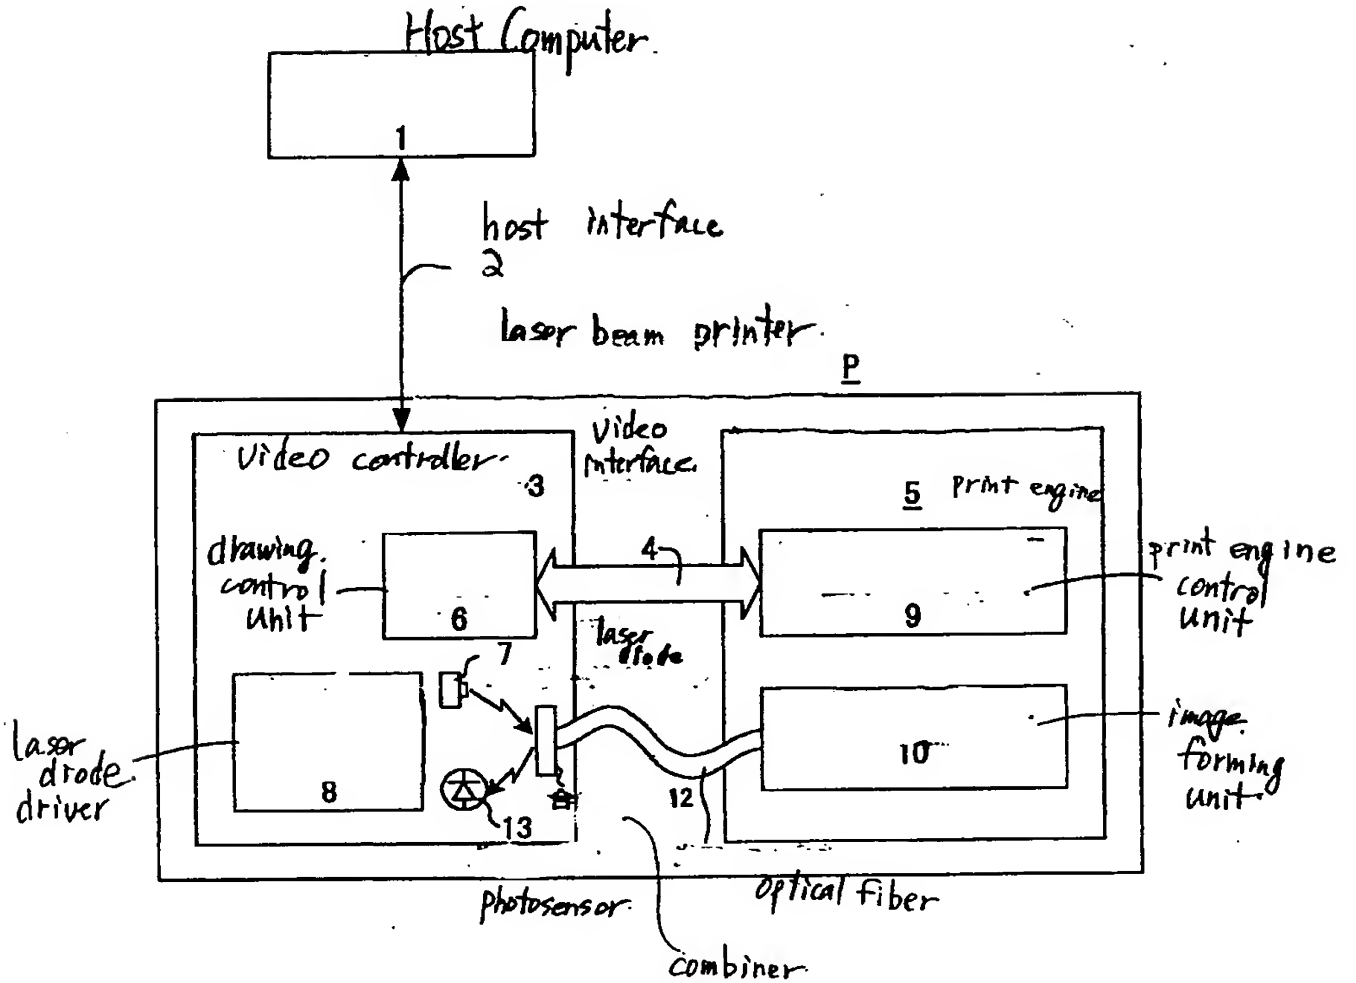 Host Computer.
1
host interface
2
laser beam printer.
P
Video controller.
3
Video
interface.
5 print engine
drawing.
control
unit
6
4
9
print engine
control
unit
7
laser
diode
laser
drode.
driver
8
13
12
10
image.
forming
unit.
photosensor.
optical fiber
combiner.